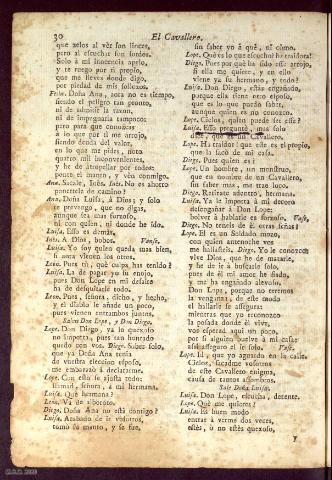 30
El Cavallero.
que zelos al vèr son linces,
pero al escuchar son sordos.
Solo à mi inocencia apelo,
y te ruego por ti propio,
que me lleves donde digo,
por piedad de mis sollozos.
Doña Ana, aora no es tiempo,
siendo el peligro tan pronto,
ni de admitir la razon,
ni de impugnarla tampoco;
pero para que conozcas
à lo que por ti me arrojo,
siendo deuda del valor,
en lo que me pides, noto
quanto inconvenientes,
y he de atropellar por todos:
ponte el manto, y vèn conmigo.
Ana. Sacale, Inès. Inès. No es ahorro
ponertela de camino?
Ana. Doña Luisa, à Dios; y solo
te prevengo, que no digas,
aunque sea mas forzoso,
ni con quien, ni donde he ido.
Luisa. Esso es demàs.
Inès. A Dios, bobos. Vanse.
Luisa. Yo soy quien queda mas bien,
si antes vienen los otros.
Leon. Pues tù, què culpa has tenido?
Luisa. La de pagar yo su enojo,
pues Don Lope en mi desafo-
ha de desquitarle todo.
Leon. Pues, señora, dicho, y hecho,
y el diablo le añade un poco,
pues vienen entrambos juntos.
Salen Don Lope, y Don Diego.
Lope. Don Diego, ya lo que esso
no importa, pues tan honrado
quedo con vos. Diego. Sabet solo,
que ya Doña Ana tenìa
de vuestra eleccion esposo,
me embarazò à declararme.
Lope. Con esso se ajusta todo:
llamad, señora, à mi hermana.
Luisa. Què hermana?
Leon. Va de alboroto.
Diego. Doña Ana no està contigo?
Luisa. Acabado de ir vosotros,
tomò su manto, y se fue,
sin saber yo à què, ni còmo.
Lope. Què es lo que escucho! ha traidora!
Diego. Pues por què ha sido esse arrojo,
si ella me quiere, y en ello
viene ya su hermano, y todo?
Luisa. Don Diego, estàs engañado,
porque ella tiene otro esposo,
que es lo que puedo saber,
aunque quien es no conozco.
Lope. Cielos, quien puede ser este?
Luisa. Esso preguntè, mas solo
dixe, que es un Cavallero.
Lope. Ha traidor! que este es el propio,
que la sacò de mi casa.
Diego. Pues quien es?
Lope. Un hombre, un monstruo,
que es nombre de un Cavallero,
sin saber mas, me trae loco.
Diego. Retirate adentro, hermana.
Luisa. Ya le importa à mi decoro
defengañar à Don Lope:
bolver à hablarle es forzoso. Vase.
Diego. No teneis de èl otras señas?
Lope. El es un Soldado mozo,
con quien antenoche ves
me hallasteis. Diego. Yo le conozco:
vive Dios, que he de matarle,
y he de ir à buscarle solo,
pues de èl mi amor he fiado,
y me ha engañado alevoso.
Don Lope, porque no erremos
la venganza, de esse modo
el hallarle se assegura:
mientras que yo reconozco
la posada donde èl vive,
vos esperad aqui un poco,
por si alguno buelve à mi casa:
assi asseguro el le solo. Vase.
Lope. Id, que yo aguardo en la calle.
Cielos, sacadme vosotros
de este Cavallero enigma,
causa de tantos assombros.
Sale Doña Luisa.
Luisa. Don Lope, escucha, detente.
Lope. Què me quieres?
Luisa. Es buen modo
entrar à verme dos veces,
estès, ò no estès quexoso,
y